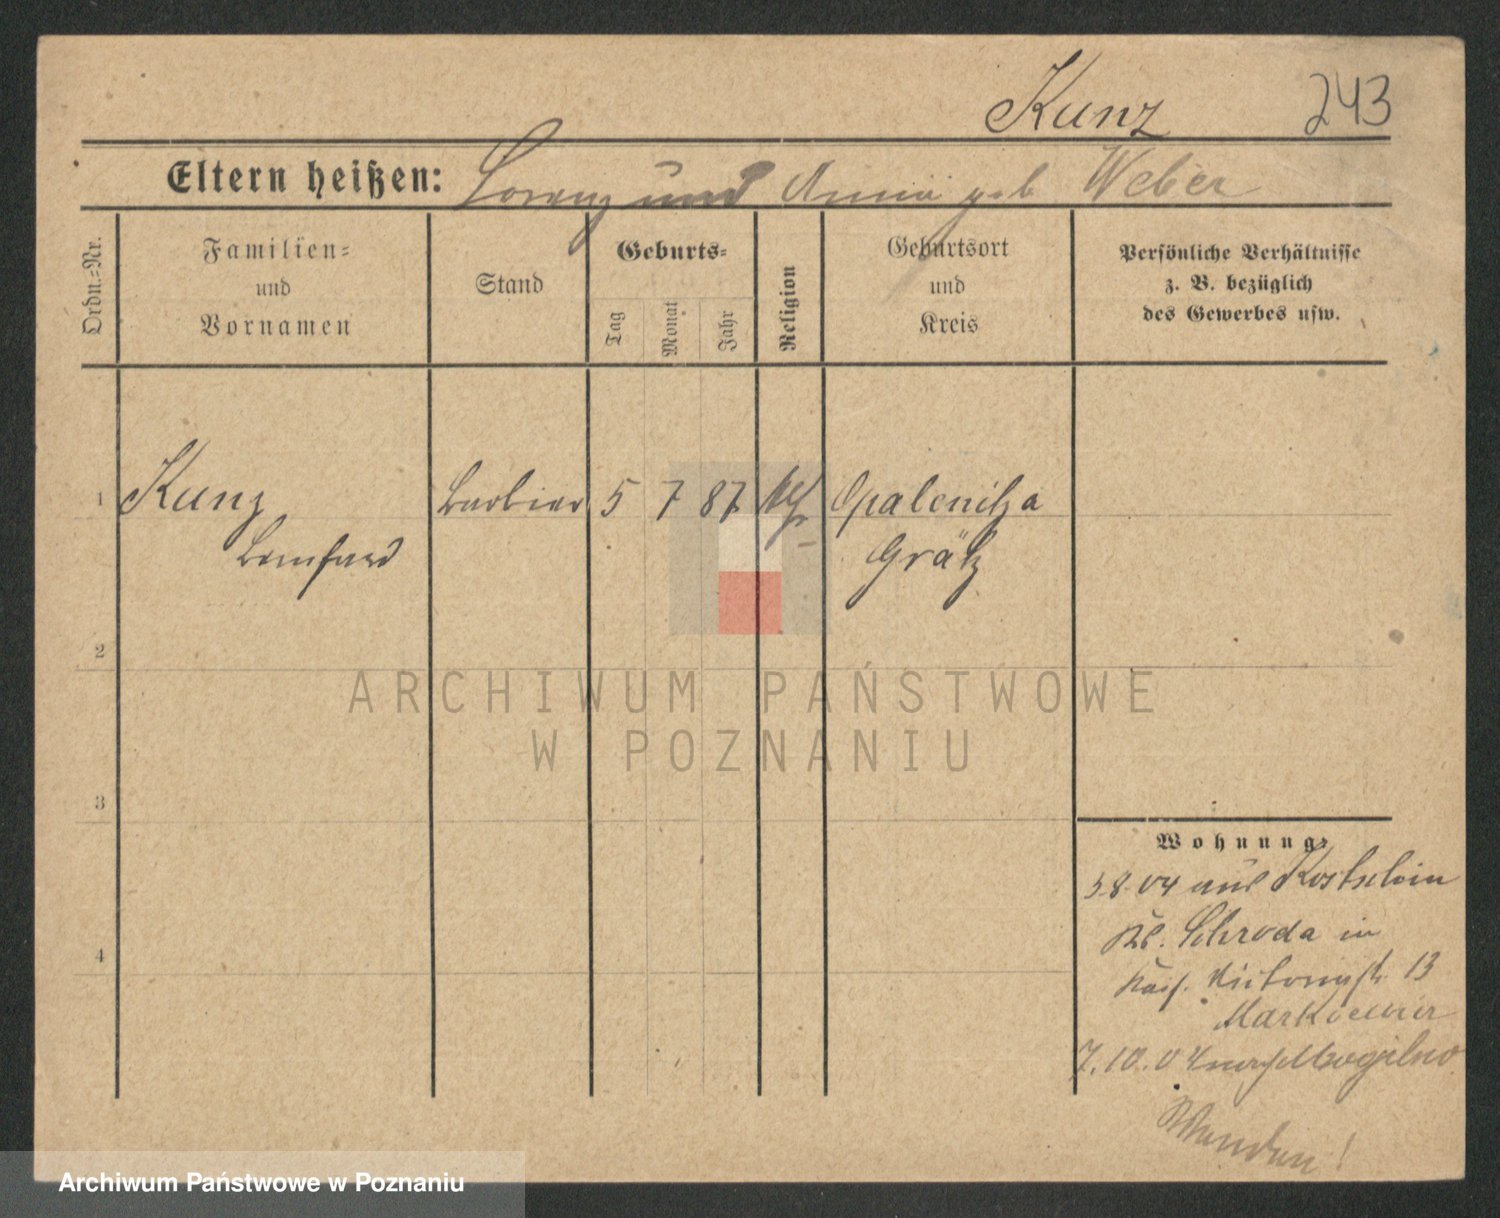 Kunz 243
Eltern heißen: Lorenz und Anna geb Weber
Ordn.=Nr.
Familien=
und
Vornamen
Stand
Geburts=
Tag
Monat
Jahr
Religion
Geburtsort
und
Kreis
Persönliche Verhältnisse
z. B. bezüglich
des Gewerbes usw.
1 Kunz Barbier 5 7 87 kath Opalenitza
Bernhard Grätz
2
3
4
Wohnung:
3.8.04 aus Kostschin
Kr. Schroda in
Kais. Victoriastr. 13
7.10.04 nach Mogilno
ARCHIWUM PAŃSTWOWE
W POZNANIU
Archiwum Państwowe w Poznaniu